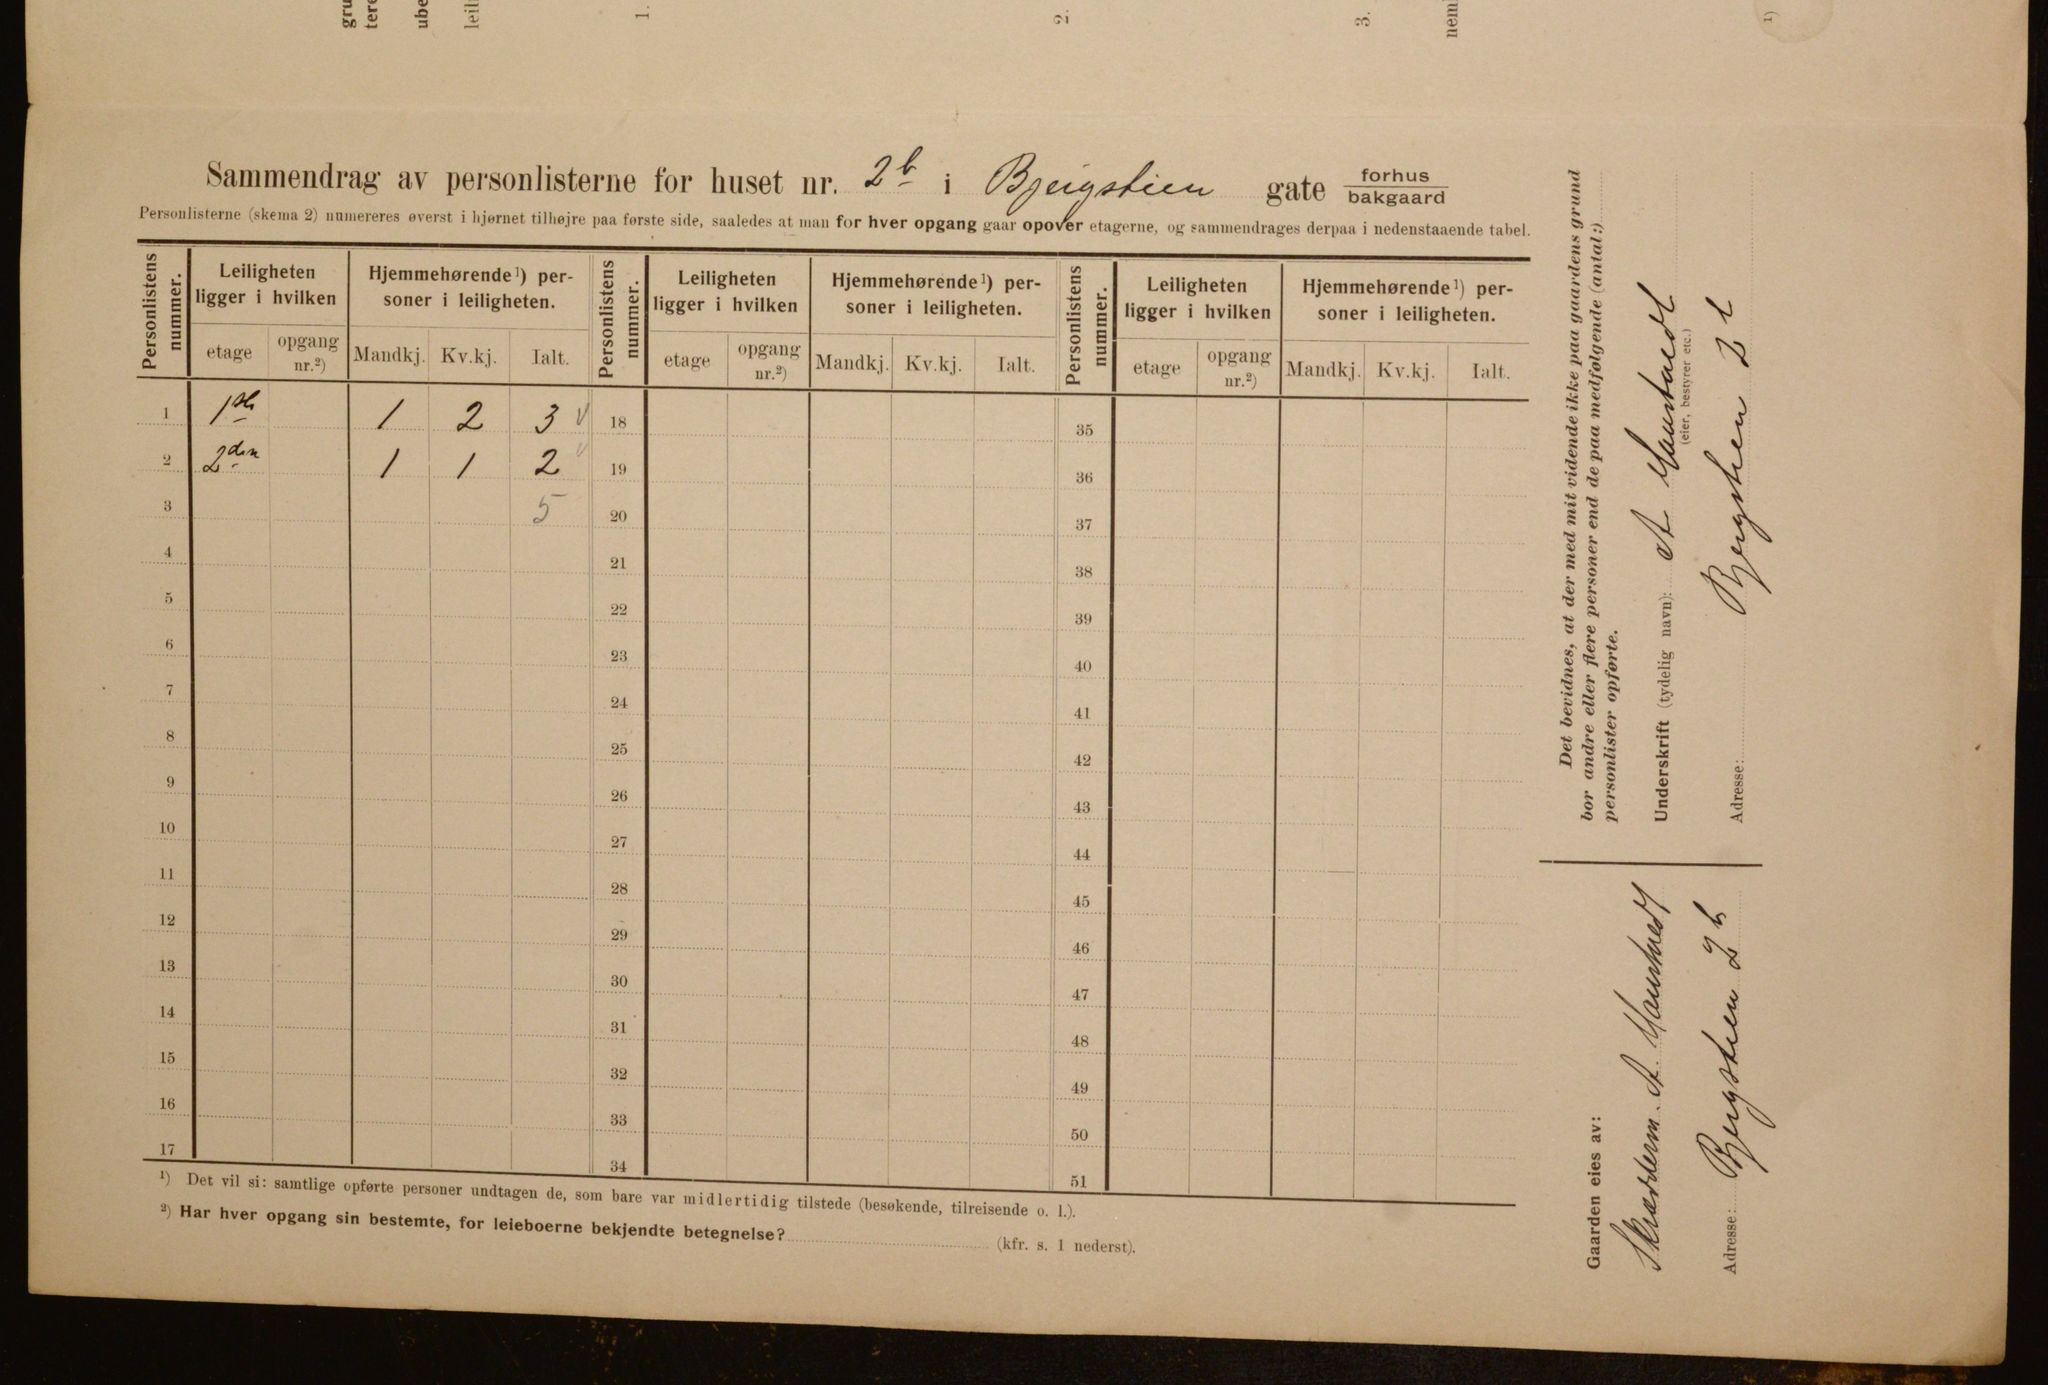 Sammendrag av personlisterne for huset nr. 2b i Bjergstien gate forhus
bakgaard
Personlisterne (skema 2) numereres øverst i hjørnet tilhøjre paa første side, saaledes at man for hver opgang gaar opover etagerne, og sammendrages derpaa i nedenstaaende tabel.
Personlistens nummer. Leiligheten ligger i hvilken Hjemmehørende¹) personer i leiligheten. Personlistens nummer. Leiligheten ligger i hvilken Hjemmehørende¹) personer i leiligheten. Personlistens nummer. Leiligheten ligger i hvilken Hjemmehørende¹) personer i leiligheten.
etage opgang nr.²) Mandkj. Kv.kj. Ialt. etage opgang nr.²) Mandkj. Kv.kj. Ialt. etage opgang nr.²) Mandkj. Kv.kj. Ialt.
1 1ste 1 2 3 18 35
2 2den 1 1 2 19 36
3 5 20 37
4 21 38
5 22 39
6 23 40
7 24 41
8 25 42
9 26 43
10 27 44
11 28 45
12 29 46
13 30 47
14 31 48
15 32 49
16 33 50
17 34 51
¹) Det vil si: samtlige opførte personer undtagen de, som bare var midlertidig tilstede (besøkende, tilreisende o. l.).
²) Har hver opgang sin bestemte, for leieboerne bekjendte betegnelse? (kfr. s. 1 nederst).
Det bevidnes, at der med mit vidende ikke paa gaardens grund
bor andre eller flere personer end de paa medfølgende (antal:)
personlister opførte.
Underskrift (tydelig navn): A
(eier, bestyrer etc.)
Adresse: Bjergstien 2b
Gaarden eies av:
A.
Adresse: Bjergstien 2b
1.
2.
3.
¹)